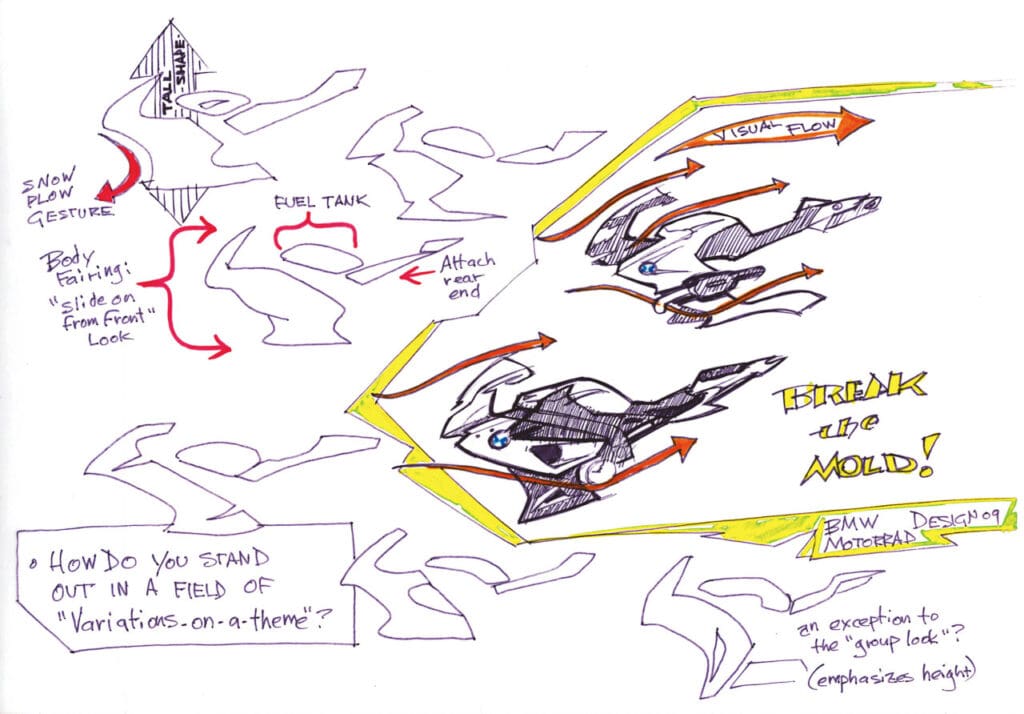 TALL
SHAPE
SNOW
PLOW
GESTURE
FUEL TANK
VISUAL FLOW
Body
Fairing:
"slide on
from Front"
Look
Attach
rear
end
BREAK
the
MOLD!
BMW DESIGN 09
MOTORRAD
• HOW DO YOU STAND
OUT IN A FIELD OF
"Variations-on-a-theme"?
an exception to
the "group look"?
(emphasizes height)